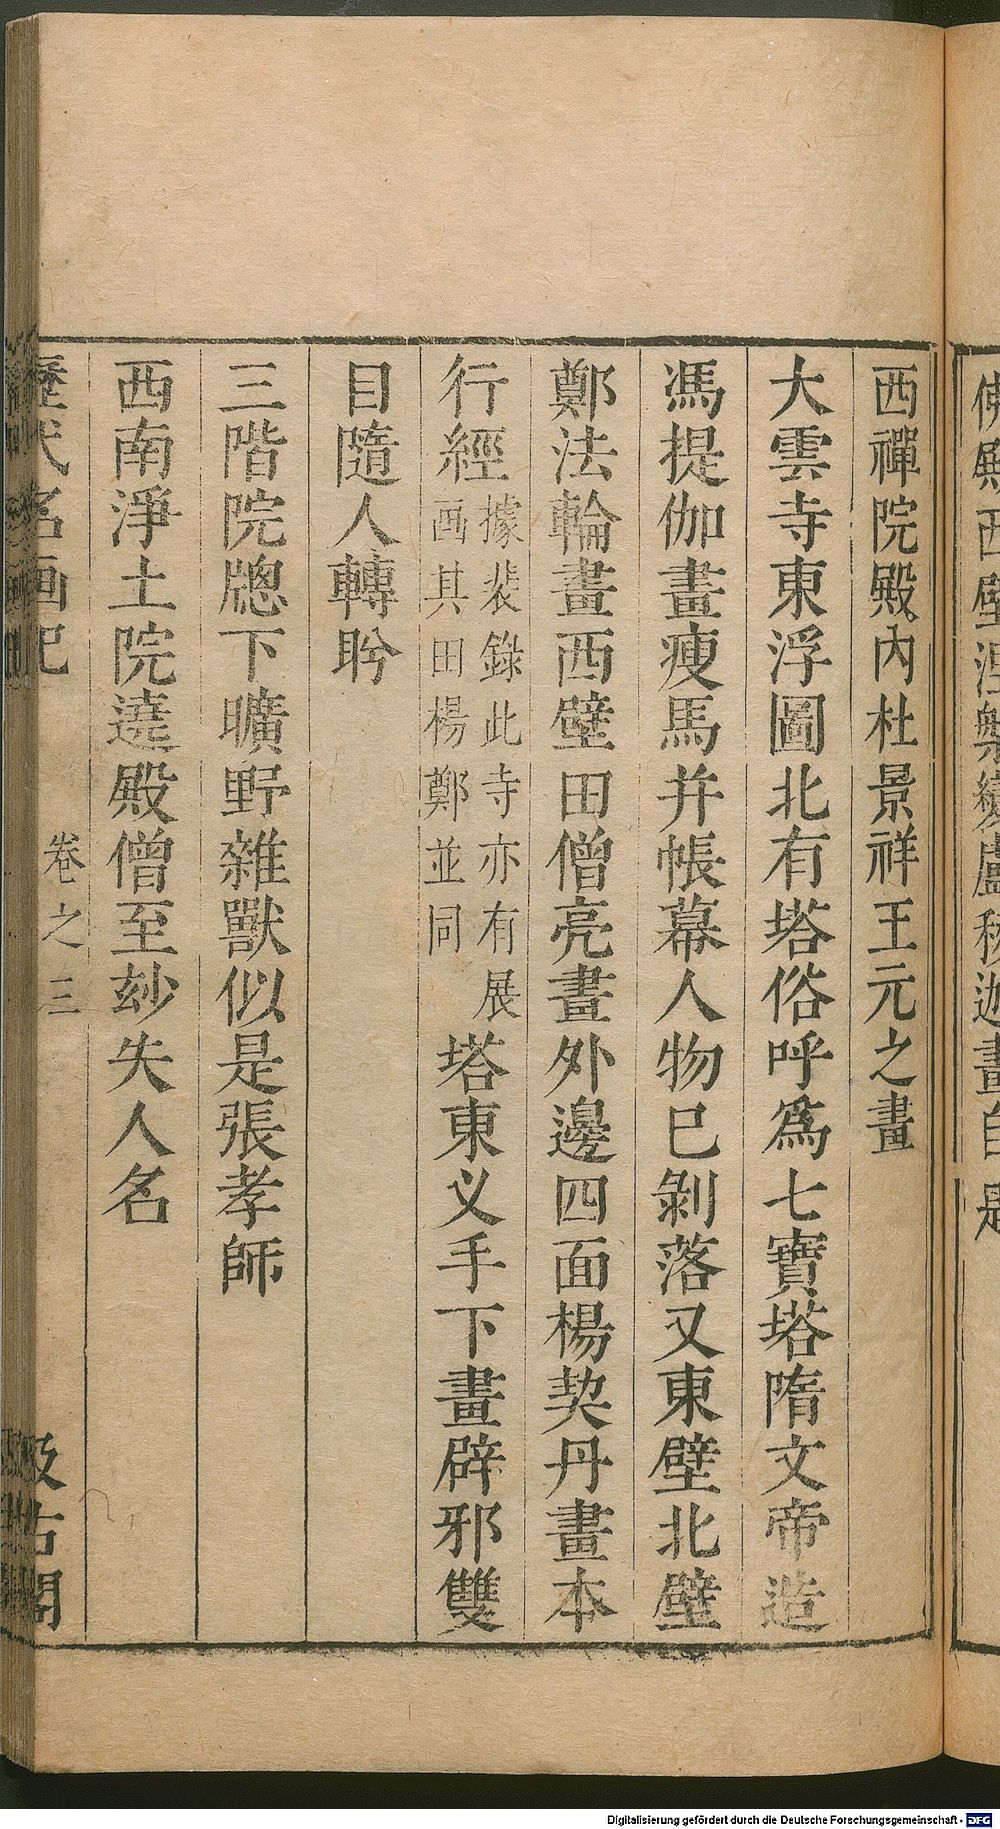 西禪院殿內杜景祥王元之畫
大雲寺東浮圖北有塔俗呼爲七寶塔隋文帝造
馮提伽畫瘦馬并帳幕人物巳剝落又東壁北壁
鄭法輪畫西壁田僧亮畫外邊四面楊契丹畫本
行經據裴錄此寺亦有展画其田楊鄭並同塔東义手下畫辟邪雙
目隨人轉盻
三階院牕下曠野雜獸似是張孝師
西南淨土院遶殿僧至玅失人名
歷代名画記 卷之三 汲古閣
Digitalisierung gefördert durch die Deutsche Forschungsgemeinschaft - DFG